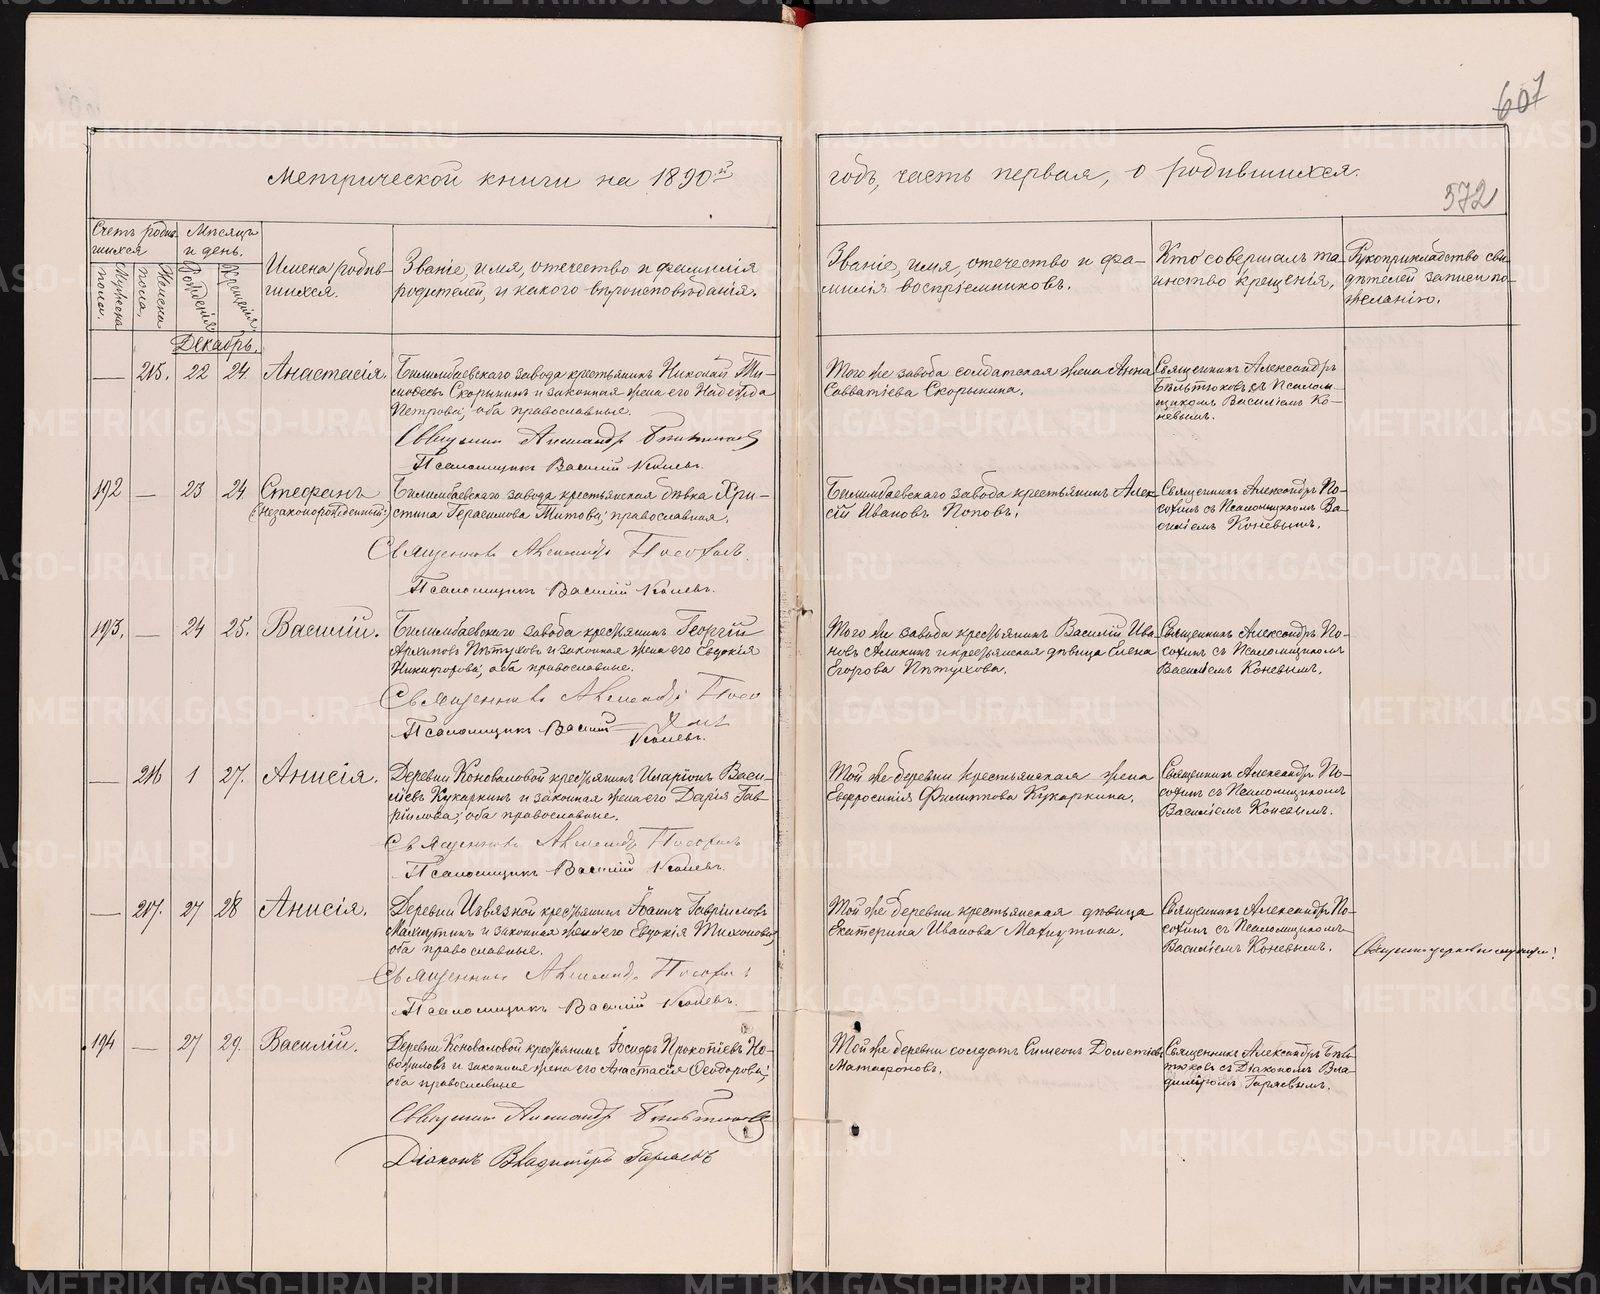 607
Метрической книги на 1890й
годъ, часть первая, о родившихся.
572
Счетъ родив-
шихся
Мужеска полa.
Женска пола.
Мѣсяцъ
и день.
Рожденія.
Крещенія.
Имена родив-
шихся.
Званіе, имя, отечество и фамилія
родителей, и какого вѣроисповѣданія.
Званіе, имя, отечество и фа-
милія воспріемниковъ.
Кто совершалъ та-
инство крещенія.
Рукоприкладство сви-
дѣтелей записи по-
желанію.
Декабрь.
— 215. 22 24. Анастасія.
Билимбаевскаго завода крестьянинъ Николай Ти-
моѳеевъ Скорынинъ и законная жена его Надежда
Петрова, оба православные.
Священникъ Александръ Бѣльтюковъ
Псаломщикъ Василій Коневъ.
Того же завода солдатская жена Анна
Савватіева Скорынина.
Священникъ Александръ
Бѣльтюковъ съ Псалом-
щикомъ Василіемъ Ко-
невымъ.
192 — 23 24 Стефанъ
(незаконорожденный)
Билимбаевскаго завода крестьянская дѣвка Хри-
стина Герасимова Титова; православная.
Священникъ Александръ Посохинъ.
Псаломщикъ Василій Коневъ.
Билимбаевскаго завода крестьянинъ Алек-
сій Ивановъ Поповъ.
Священникъ Александръ По-
сохинъ съ Псаломщикомъ Ва-
силіемъ Коневымъ.
193. — 24 25. Василій.
Билимбаевскаго завода крестьянинъ Георгій
Архиповъ Пѣтуховъ и законная жена его Евдокія
Никифорова; оба православные.
Священникъ Александръ Посо
хинъ
Псаломщикъ Василій Коневъ.
Того же завода крестьянинъ Василій Ива-
новъ Аликинъ и крестьянская дѣвица Елена
Егорова Пѣтухова.
Священникъ Александръ По-
сохинъ съ Псаломщикомъ
Василіемъ Коневымъ.
— 216 1 27. Анисія.
Деревни Коноваловой крестьянинъ Иларіонъ Васи-
ліевъ Кукаркинъ и законная жена его Дарія Гав-
ріилова; оба православные.
Священникъ Александръ Посохинъ
Псаломщикъ Василій Коневъ.
Той же деревни крестьянская жена
Евфросинія Филиппова Кукаркина.
Священникъ Александръ По-
сохинъ съ Псаломщикомъ
Василіемъ Коневымъ.
— 217. 27 28 Анисія.
Деревни Извязной крестьянинъ Іоаннъ Гавріиловъ
Махнутинъ и законная жена его Евдокія Тихонова;
оба православные.
Священникъ Александръ Посохинъ
Псаломщикъ Василій Коневъ.
Той же деревни крестьянская дѣвица
Екатерина Иванова Махнутина.
Священникъ Александръ По-
сохинъ съ Псаломщикомъ
Василіемъ Коневымъ.
194 — 27 29. Василій.
Деревни Коноваловой крестьянинъ Іосифъ Прокопіевъ Но-
вожиловъ и законная жена его Анастасія Ѳеодорова;
оба православные
Священникъ Александръ Бѣльтюковъ
Діаконъ Владиміръ Гаряевъ
Той же деревни солдатъ Симеонъ Дометіевъ
Матафоновъ.
Священникъ Александръ Бѣль-
тюковъ съ Діакономъ Вла-
диміромъ Гаряевымъ.
METRIKI.GASO-URAL.RU